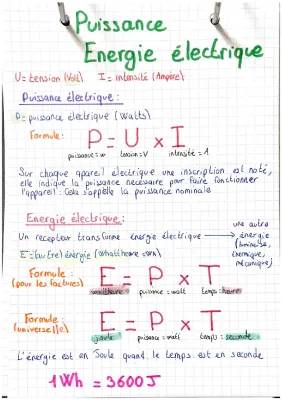 Puissance
Energie électrique
U= tension (Volt) I= intensité (Ampère)
Puissance électrique:
P= puissance électrique (Watts)
Formule: P= U x I
puissance=w tension=V intensité=A
Sur chaque appareil électrique une inscription est noté,
elle indique la puissance nécessaire pour faire fonctionner
l'appareil: Cela s'appelle la puissance nominale
Energie électrique:
Un recepteur transforme énergie électrique → une autre énergie (lumineuse, thermique, mécanique)
E= énergie
Formule: (pour les factures) E = P x T
wattheure puissance=watt temps=heure
Formule: (universelle) E = P x T
joule puissance=watt temps=seconde
L'énergie est en Joule quand le temps est en seconde
1Wh = 3600J